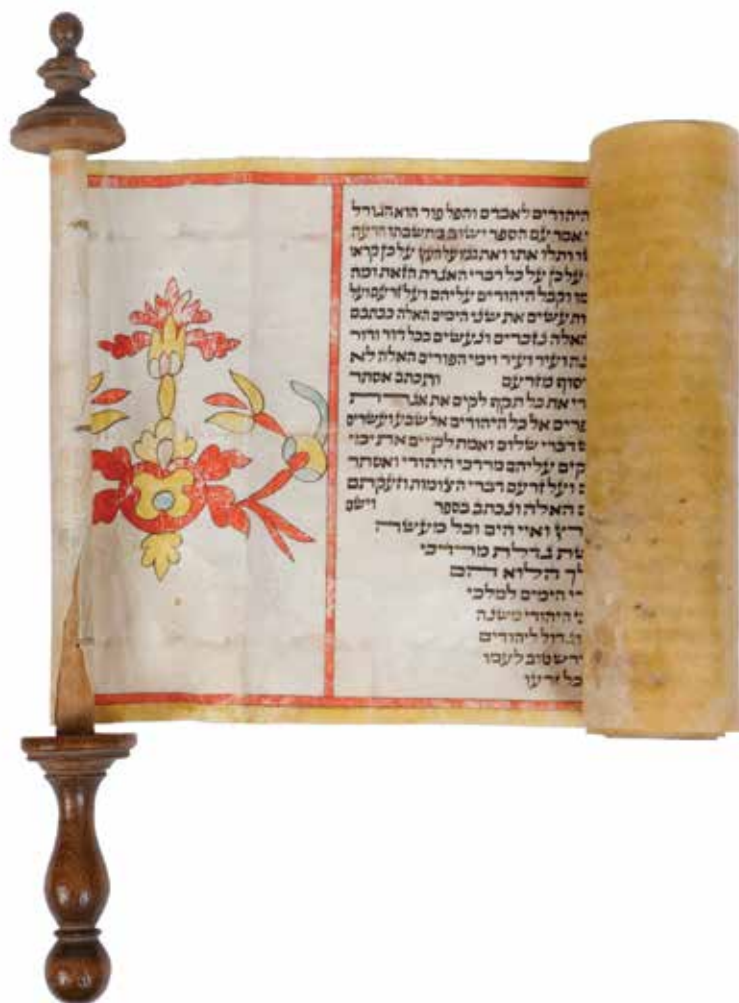 היהודים לאבדם והפל פור הוא הגורל
אמר עם הספר ישוב מחשבתו הרעה
ותלו אתו ואת בניו על העץ על כן קראו
על כן על כל דברי האגרת הזאת ומה
וקבל היהודים עליהם ועל זרעם ועל
עשים את שני הימים האלה ככתבם
האלה נזכרים ונעשים בכל דור ודור
ועיר ועיר וימי הפורים האלה לא
יסוף מזרעם ותכתב אסתר
את כל תקף לקים את אגרת
אל כל היהודים אל שבע ועשרים
דברי שלום ואמת לקיים את ימי
קים עליהם מרדכי היהודי ואסתר
ועל זרעם דברי הצומות וזעקתם
האלה ונכתב בספר וישם
ואיי הים וכל מעשה
גדלת מרדכי
הלוא הם
הימים למלכי
היהודי משנה
וגדול ליהודים
דרש טוב לעמו
כל זרעו